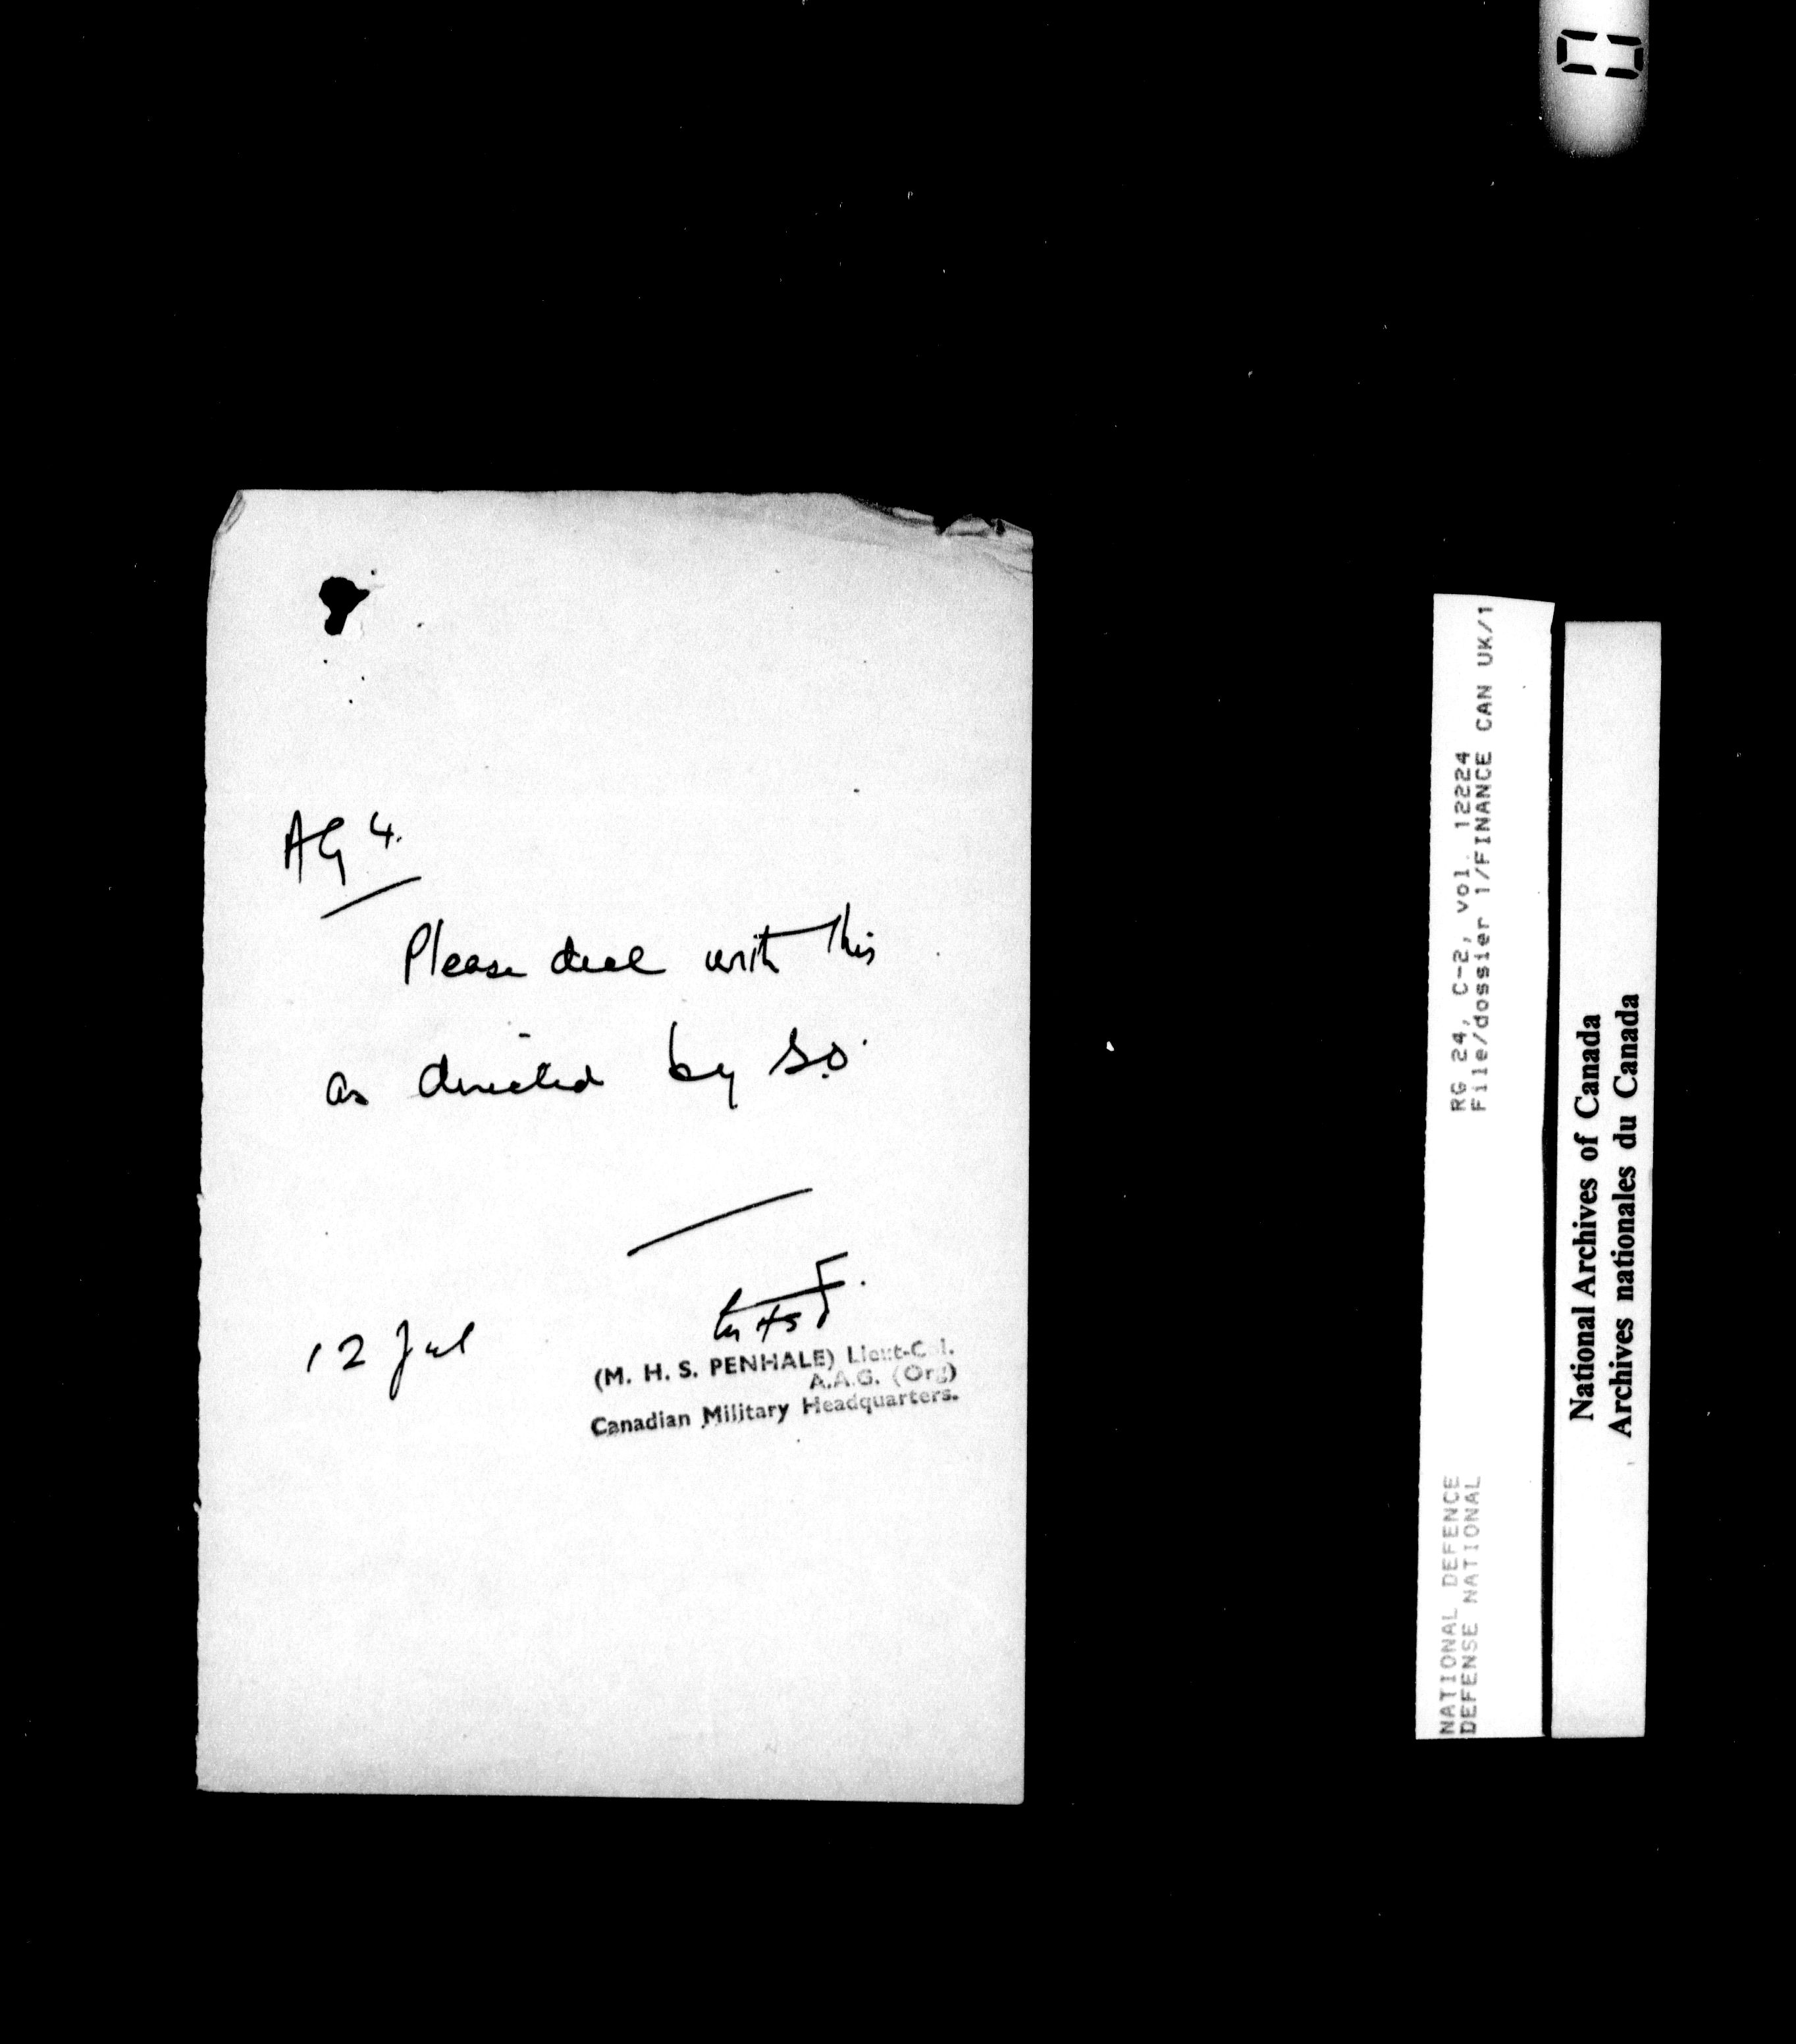 AG 4.
Please deal with this
as directed by S.O.
12 Jul
(M. H. S. PENHALE) Lieut-Col.
A.A.G. (Org)
Canadian Military Headquarters.
RG 24, C-2, vol. 12224
File/dossier 1/FINANCE CAN UK/1
NATIONAL DEFENCE
DEFENSE NATIONAL
National Archives of Canada
Archives nationales du Canada